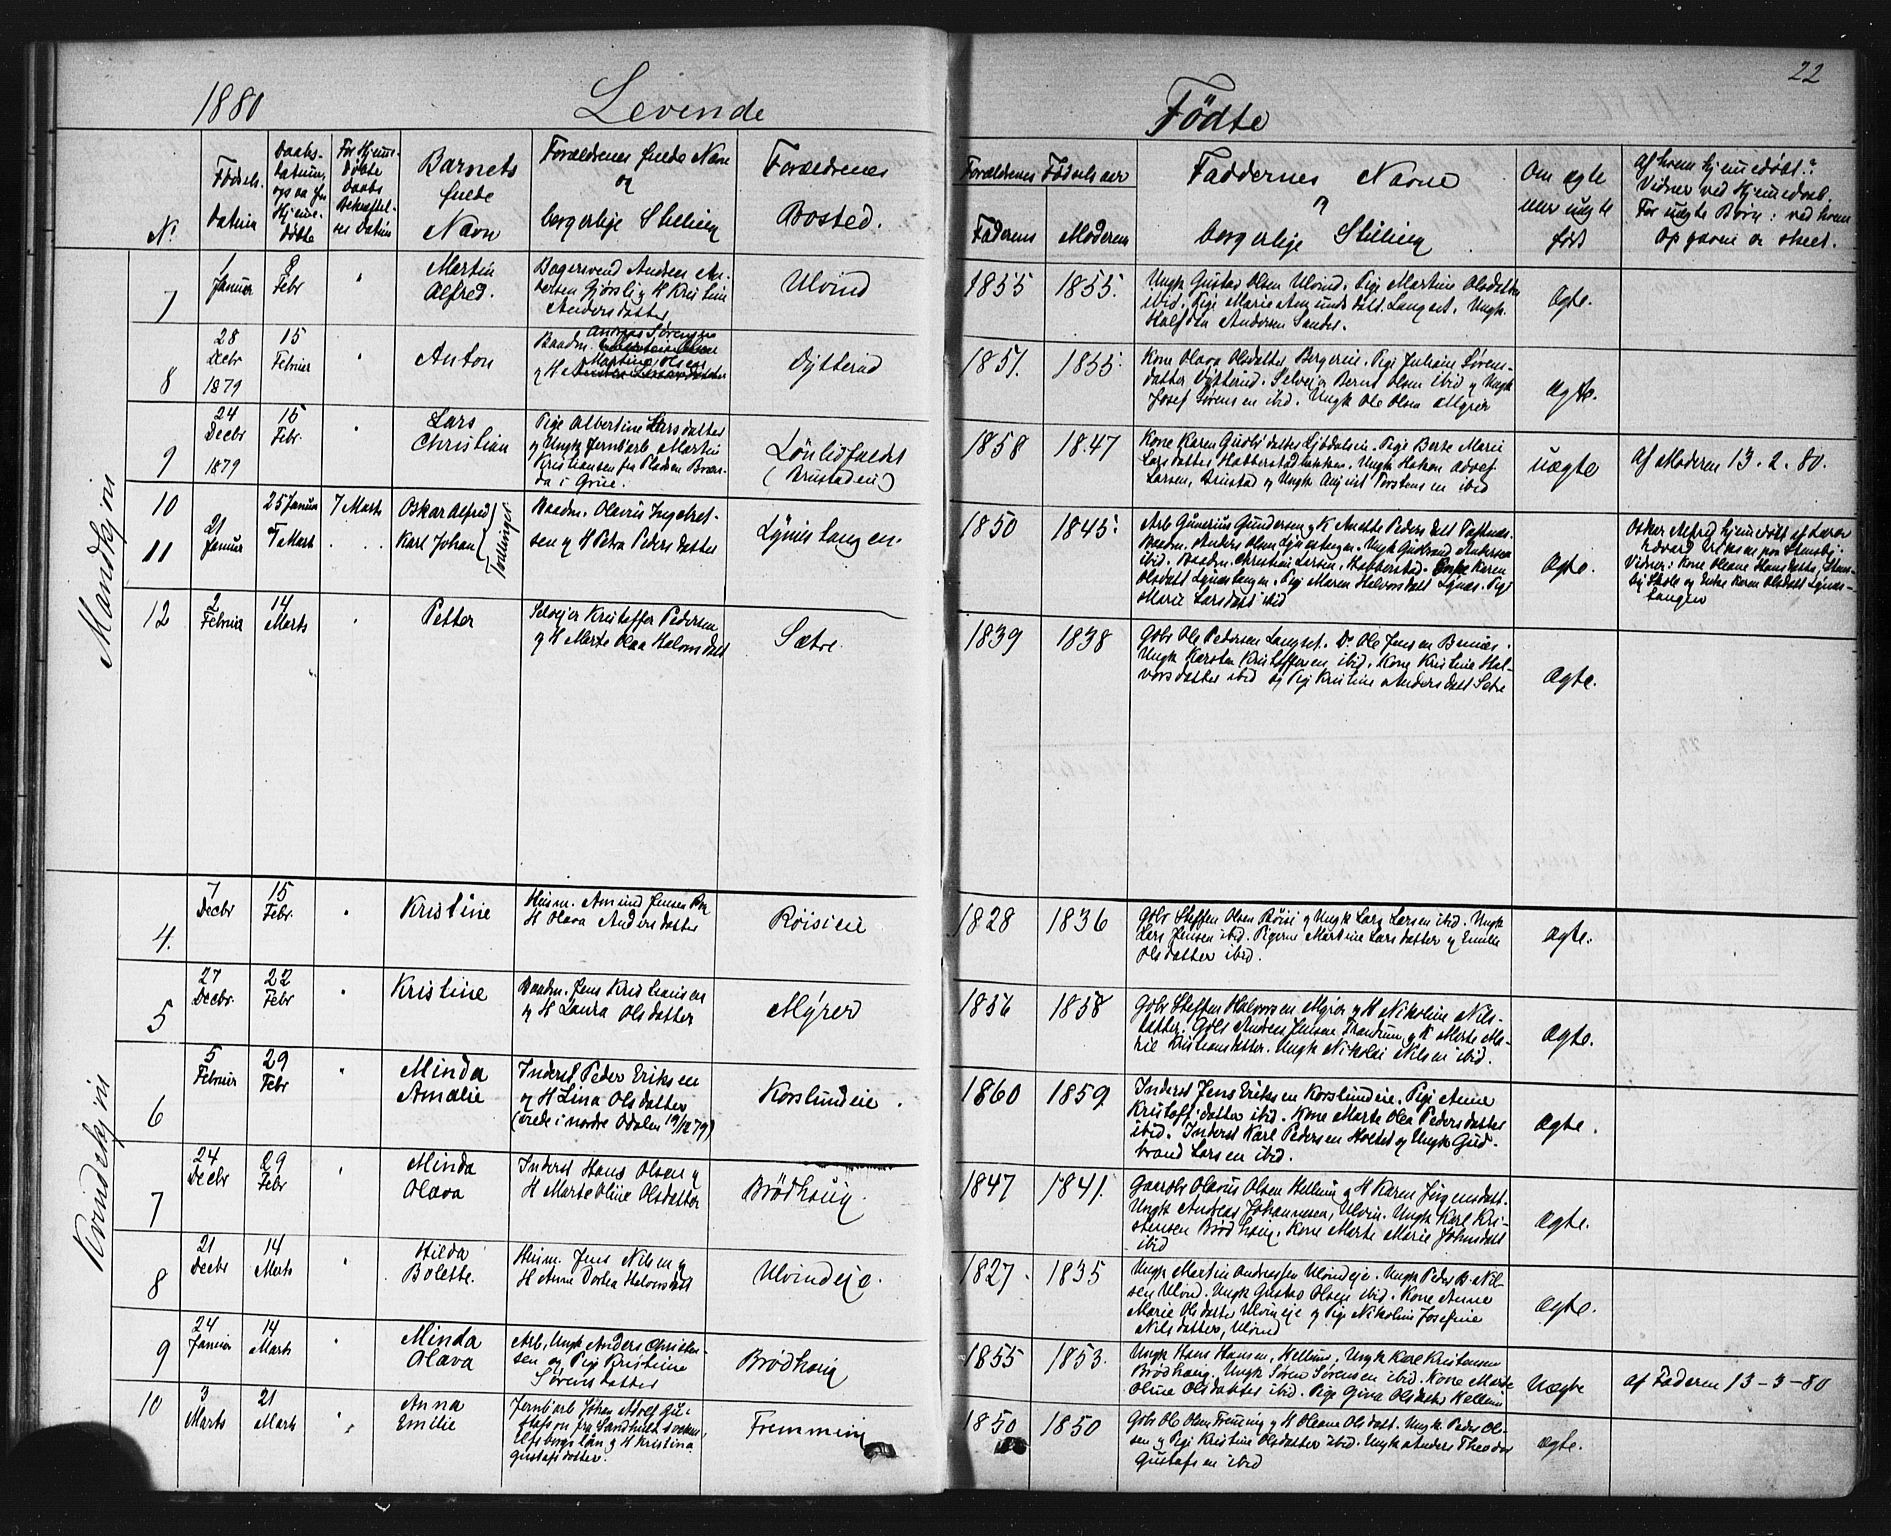 22
1880 Levende Fødte
No.
Fødsels-
datum
Daabs-
datum,
Hjemme-
døbte
For Hjemme-
døbte
daabs
Barnets
fulde
Navn
Forældrenes fulde Navn
og
borgerlige Stilling
Forældrenes
Bosted.
Forældrenes Fødselsaar
Faderens
Moderens
Faddernes Navne
og
borgerlige Stilling
Om ægte
eller uægte
født
Af hvem hjemmedøbt?
Vidner ved Hjemmedaab.
For uægte Børn: ved hvem
Opgaven er skeet.
Mandkjøn
7
1
Januar
8
Febr
Martin
Alfred.
Andersdatter
Ulvind
1855
1855.
Ungk Gustav Olsen Ulvind. Pige Martine Olsdatter
ibid. Pige Marie Amundsdatt. Langset. Ungk.
Halfdan Andersen Sander.
Ægte.
8
28
Decbr
1879
15
Februar
Anton
Baadm. Andreas Sørensen
Martine Olsdatter
Dytterud
1851.
1855.
Kone Olava Olsdatter Bergerens. Pige Juliane Sørens-
datter Dytterud. Selveier Bernt Olsen ibid og Ungk
Josef Sørensen ibid. Ungk Ole Olsen Myrer
Ægte.
9
24
Decbr
1879
15
Febr.
Lars
Christian
Pige Albertine Larsdatter
og Ungk Jernbarb. Martin
Kristiansen fra Pladsen
i Grue.
1858
1847
Larsen, Brustad og Ungk August Torstensen ibid
uægte
Af Moderen 13.2.80.
10
11
21
Januar
25 Januar
7 Marts
7 Marts
Oskar Alfred
Karl Johan
Tvillinger
Baadm. Olavus Ingebret-
sen og H Petra Pedersdatter
Lynæstangen.
1850
1845.
Baadm. Anders Olsen Lynæstangen. Ungk Gudbrand Andersen
ibid. Baadm. Christian Larsen, Habberstad. Enke Karen
Olsdatt Lynæstangen. Pige Maren Halvorsdatt Lynæs. Pige
Marie Larsdatt ibid
Ægte.
Oskar Alfred hjemmedøbt af Lærer
Edvard Eriksen paa Stensby.
Vidner: Kone Oleane Hansdatter, Stens-
by Skole og Enke Karen Olsdatt Lynæs-
tangen
12
2
Februar
14
Marts
Petter
Selveier Kristoffer Pedersen
og H Marte Olea Halvorsdatt
Sætre.
1839
1838
Gbr Ole Pedersen Langset. Do Ole Jensen Brunæs.
Ungk Karsten Kristoffersen ibid. Kone Kristine Hal-
vorsdatter ibid og Pige Kristine Andersdatt Sætre
Ægte.
Kvindekjøn
4.
7
Decbr
15
Febr.
Kristine
Husm. Amund Jensen
H Olava Andersdatter
Røisieie
1828
1836
Gbr Steffen Olsen Røisi og Ungk Lars Larsen ibid. Ungk
Lars Jensen ibid. Pigerne Martine Larsdatter og Emilie
Olsdatter ibid.
Ægte.
5
27
Decbr.
22
Febr
Kristine
Baadm. Jens Kristiansen
og H Laura Olsdatter
Myrer
1856
1858
Gbr Steffen Halvorsen Myrer og H Nikoline Nils-
datter. Gbr Anders Jensen Trandum og K Marte Ma-
rie Kristiansdatter. Ungk Nikolai Nilsen ibid.
Ægte.
6
5
Februar
29
Febr
Minda
Amalie
Inderst Peder Eriksen
og H Lina Olsdatter
(viede i nordre Odalen 19/12 79)
Korslundeie.
1860
1859
Inderst Jens Eriksen Korslundeie. Pige Anne
Kristoffsdatter ibid. Kone Marte Olea Pedersdatter
ibid. Inderst Karl Pedersen Holtet og Ungk Gud-
brand Larsen ibid.
Ægte.
7
24
Decbr
29
Febr
Minda
Olava
Inderst Hans Olsen og
H Marte Oline Olsdatter
Brødhaug
1847
1841.
Gaardbr Olavus Olsen Hellum og H Karen Jørgensdatt.
Ungk Andreas Johannesen, Ulvin. Ungk Karl Kri-
stensen Brødhaug. Kone Marte Marie Johnsdatt
ibid
Ægte.
8
21
Decbr
14
Marts
Hilda
Bolette.
Husm. Jens Nilsen og
H Anne Dortea Halvorsdatt
Ulvindeie.
1827.
1835
Ungk Martin Andreassen Ulvindeie. Ungk Peder B. Nil-
sen Ulvind. Ungk Gustav Olsen ibid. Kone Anne
Marie Olsdatter Ulvineie og Pige Nikoline Josefine
Nilsdatter, Ulvind
Ægte.
9
24
Januar
14
Marts
Minda
Olava
Arb. Ungk Anders Christen-
sen og Pige Kristine
Sørensdatter
Brødhaug
1855
1853.
Ungk Hans Hansen, Hellum, Ungk Karl Kristensen
Brødhaug. Ungk Søren Sørensen ibid. Kone Marte
Oline Olsdatter ibid. Pige Gina Olsdatter Hellum
Uægte
af Faderen 13-3-80
10
3
Marts
21
Marts
Anna
Emilie
Jernbarb Johan Adolf Gu-
stafson fra Sandhult Socken,
Elfsborgs län og H Kristina
Gustafsdotter.
Fremming
1850
1850
Gbr Ole Olsen Fremming og H Oleane Olsdatt. Ungk Peder Ol-
sen og Pige Kristine Olsdatter ibid. Ungk Anders Theodor
Gustafsen ibid
Ægte.